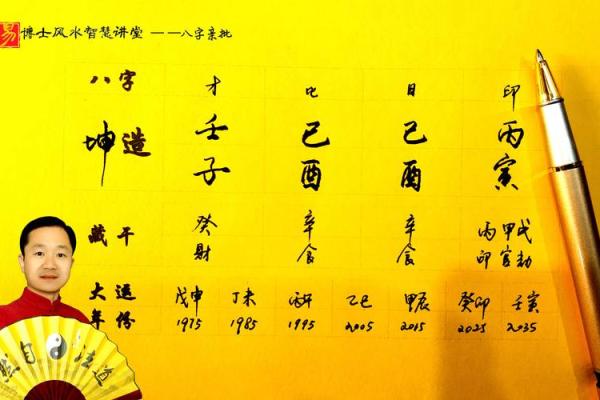 易 博士风水智慧讲堂 ——八字亲批
八字 才 比 日 印
坤造 壬 己 己 丙
子 酉 酉 寅
藏干 癸 辛 辛 丙甲戊
財 食 食 印官劫
大運 戊申 丁未 丙午 乙巳 甲辰 癸卯 壬寅
年份 1975 1985 1995 2005 2015 2025 2035
然自法道